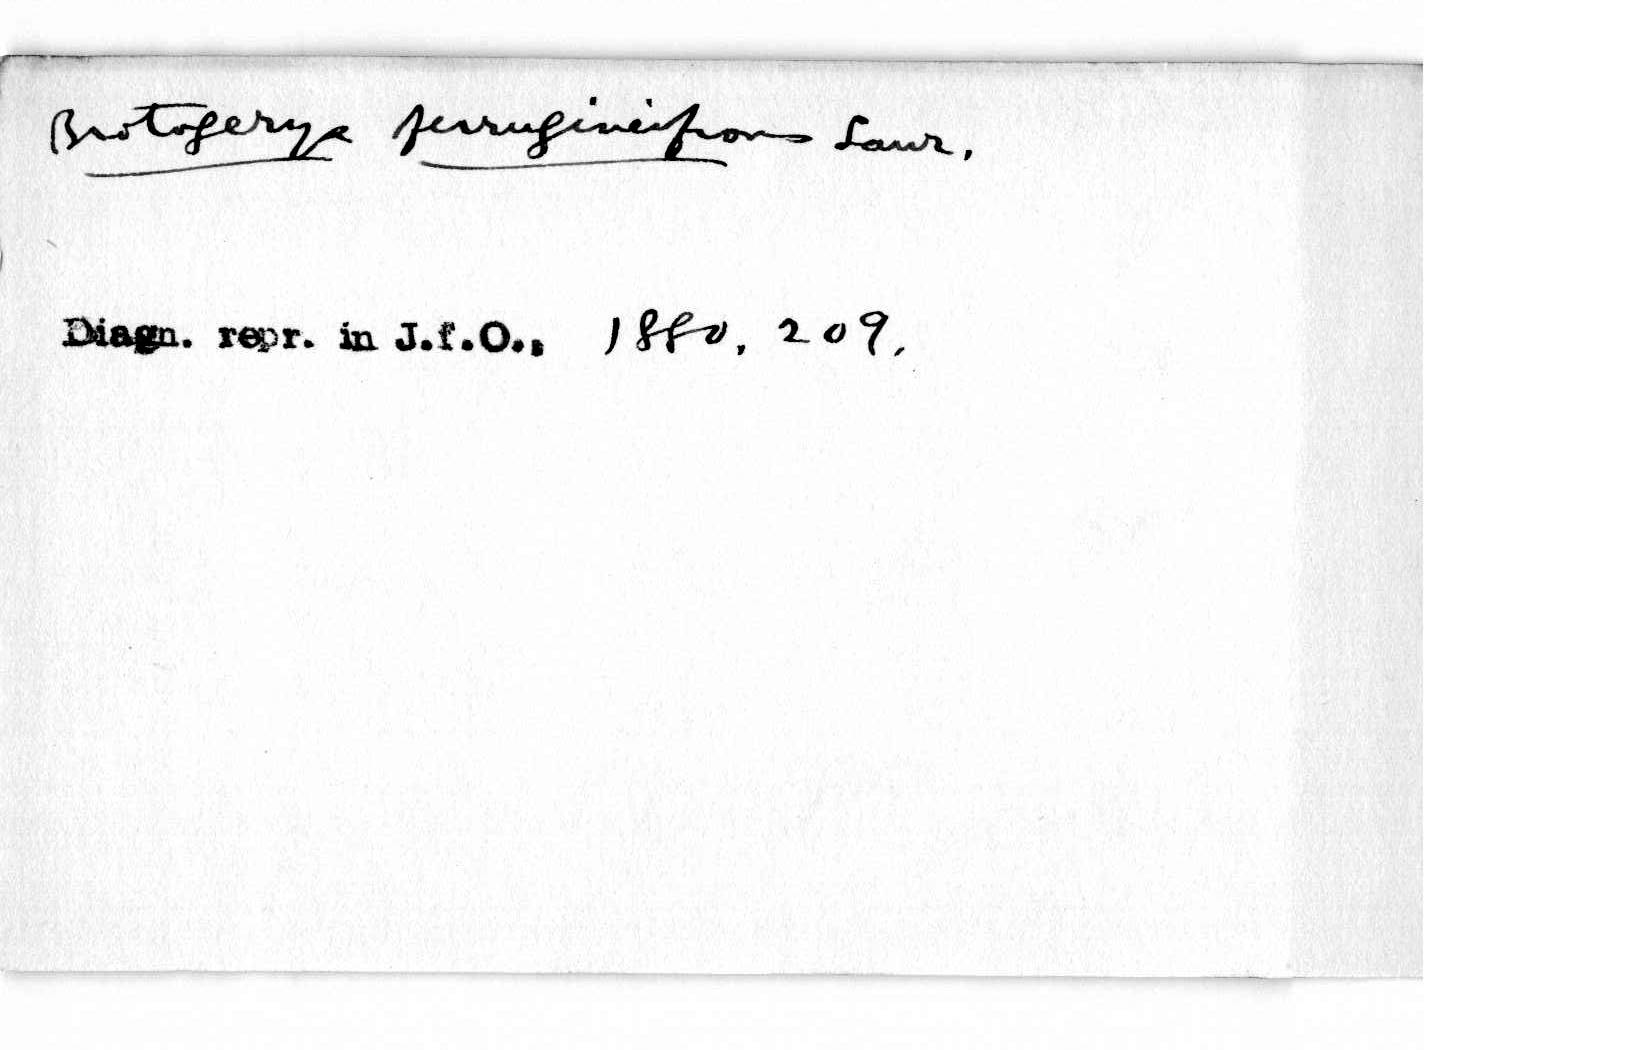 Brotogerys ferrugineifrons Lawr.
Diagn. repr. in J.f.O., 1880, 209.